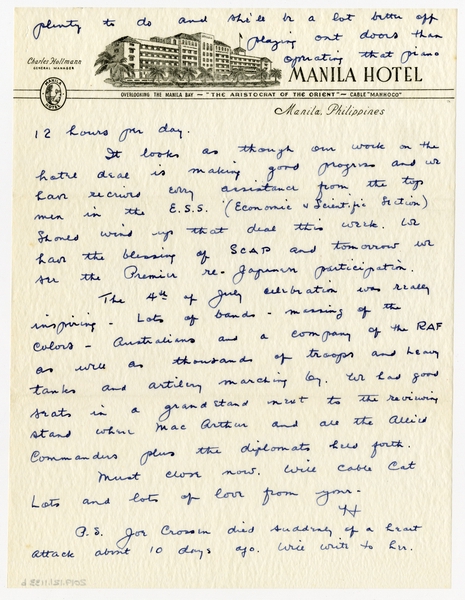 plenty to do and she'll be a lot better off
playing out doors than
operating that piano
Charles Hollmann
GENERAL MANAGER
MANILA HOTEL
MANILA HOTEL
OVERLOOKING THE MANILA BAY — "THE ARISTOCRAT OF THE ORIENT" — CABLE "MANHOCO"
Manila, Philippines
12 hours per day.
It looks as though our work on the
hotel deal is making good progress and we
have received every assistance from the top
men in the E.S.S. (Economic & Scientific Section)
Should wind up that deal this week. We
have the blessing of SCAP and tomorrow we
see the Premier re- Japanese participation.
The 4th of July celebration was really
inspiring - Lots of bands - massing of the
colors - Australians and a company of the RAF
as well as thousands of troops and heavy
tanks and artilery marching by. We had good
seats in a grandstand next to the reviewing
stand where MacArthur and all the Allied
Commanders plus the diplomats held forth.
Must close now. Will cable Cat
Lots and lots of love from your-
H
P.S. Joe Crossen died suddenly of a heart
attack about 10 days ago. Will write to her.